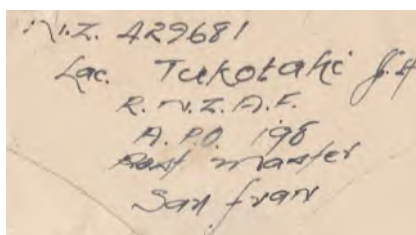 N.Z. 429681
Lac. Tukotahi J.H
R.N.Z.A.F.
A.P.O. 198
Post master
San fran